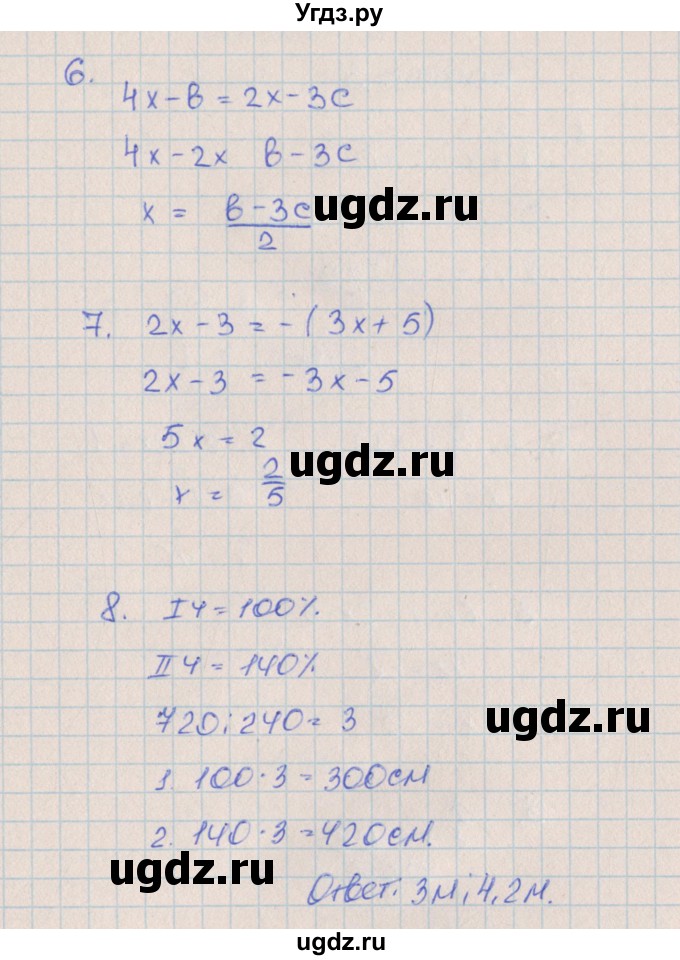 Угдз.ру
6.
4x - в = 2x - 3с
4x - 2x в - 3с
x = в - 3с / 2
ugdz.ru
7. 2x - 3 = - (3x + 5)
2x - 3 = - 3x - 5
5x = 2
ugdz.ru
x = 2/5
8. I ч = 100%.
II ч = 140%
720 : 240 = 3
ugdz.ru
1. 100 · 3 = 300см
2. 140 · 3 = 420см.
ugdz.ru
Ответ. 3м; 4,2м.
ugdz.ru